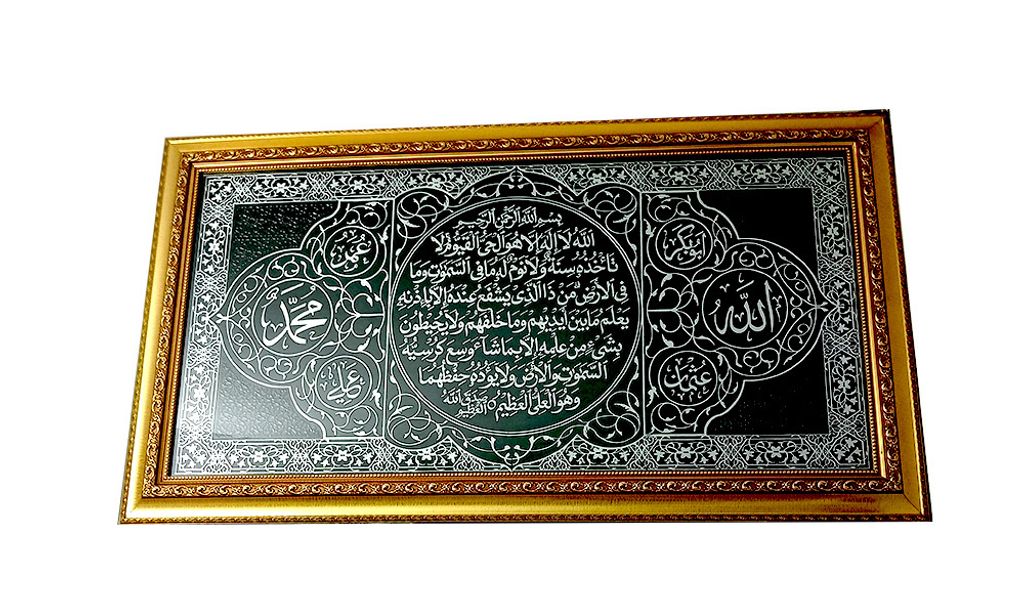 بسم الله الرحمن الرحيم
الله لا إله إلا هو الحي القيوم لا
تأخذه سنة ولا نوم له ما في السموت وما
في الأرض من ذا الذي يشفع عنده إلا بإذنه
يعلم ما بين أيديهم وما خلفهم ولا يحيطون
بشيء من علمه إلا بما شاء وسع كرسيه
السموت والأرض ولا يؤده حفظهما
وهو العلي العظيم صدق الله العظيم
الله
محمد
ابوبكر
عمر
عثمان
علي